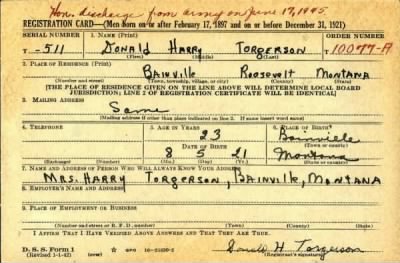 Hon. discharge from army on June 17, 1945
REGISTRATION CARD—(Men born on or after February 17, 1897 and on or before December 31, 1921)
SERIAL NUMBER 1. NAME (Print) ORDER NUMBER
T-511 DONALD HARRY TORGERSON 10077-A
(First) (Middle) (Last)
2. PLACE OF RESIDENCE (Print)
BAINVILLE ROOSEVELT MONTANA
(Number and street) (Town, township, village, or city) (County) (State)
[THE PLACE OF RESIDENCE GIVEN ON THE LINE ABOVE WILL DETERMINE LOCAL BOARD
JURISDICTION; LINE 2 OF REGISTRATION CERTIFICATE WILL BE IDENTICAL]
3. MAILING ADDRESS
Same
[Mailing address if other than place indicated on line 2. If same insert word same]
4. TELEPHONE 5. AGE IN YEARS 6. PLACE OF BIRTH
23 Bainville
DATE OF BIRTH (Town or county)
8 5 21 Montana
(Exchange) (Number) (Mo.) (Day) (Yr.) (State or country)
7. NAME AND ADDRESS OF PERSON WHO WILL ALWAYS KNOW YOUR ADDRESS
MRS. HARRY TORGERSON, BAINVILLE, MONTANA
8. EMPLOYER'S NAME AND ADDRESS
9. PLACE OF EMPLOYMENT OR BUSINESS
(Number and street or R. F. D. number) (Town) (County) (State)
I AFFIRM THAT I HAVE VERIFIED ABOVE ANSWERS AND THAT THEY ARE TRUE.
D. S. S. Form 1 Donald H Torgerson
(Revised 1-1-42) (over) GPO (Registrant's signature)